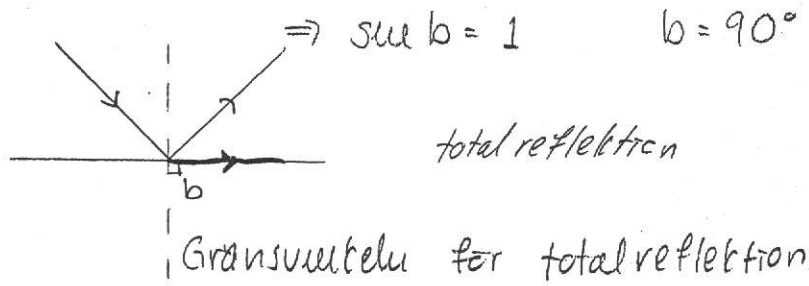 ⇒ sin b = 1 b = 90°
total reflektion
b
Gränsvinkeln för totalreflektion